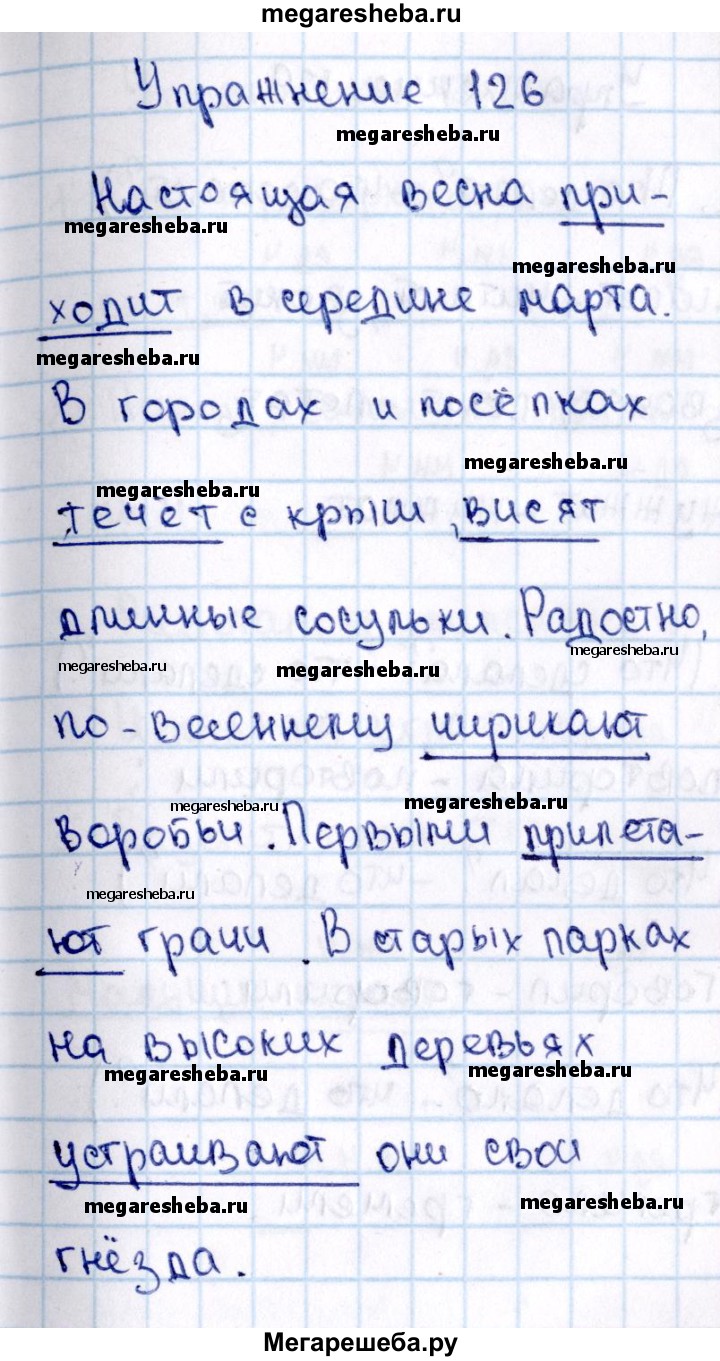 megaresheba.ru
Упражнение 126
megaresheba.ru
Настоящая весна при-
megaresheba.ru
megaresheba.ru
ходит в середине марта.
megaresheba.ru
В городах и посёлках
megaresheba.ru
megaresheba.ru
течёт с крыш, висят
длинные сосульки. Радостно,
megaresheba.ru
megaresheba.ru
megaresheba.ru
по-весеннему чирикают
megaresheba.ru
megaresheba.ru
воробьи. Первыми прилета-
megaresheba.ru
ют грачи. В старых парках
на высоких деревьях
megaresheba.ru
megaresheba.ru
устраивают они свои
megaresheba.ru
megaresheba.ru
гнёзда.
Мегарешеба.ру